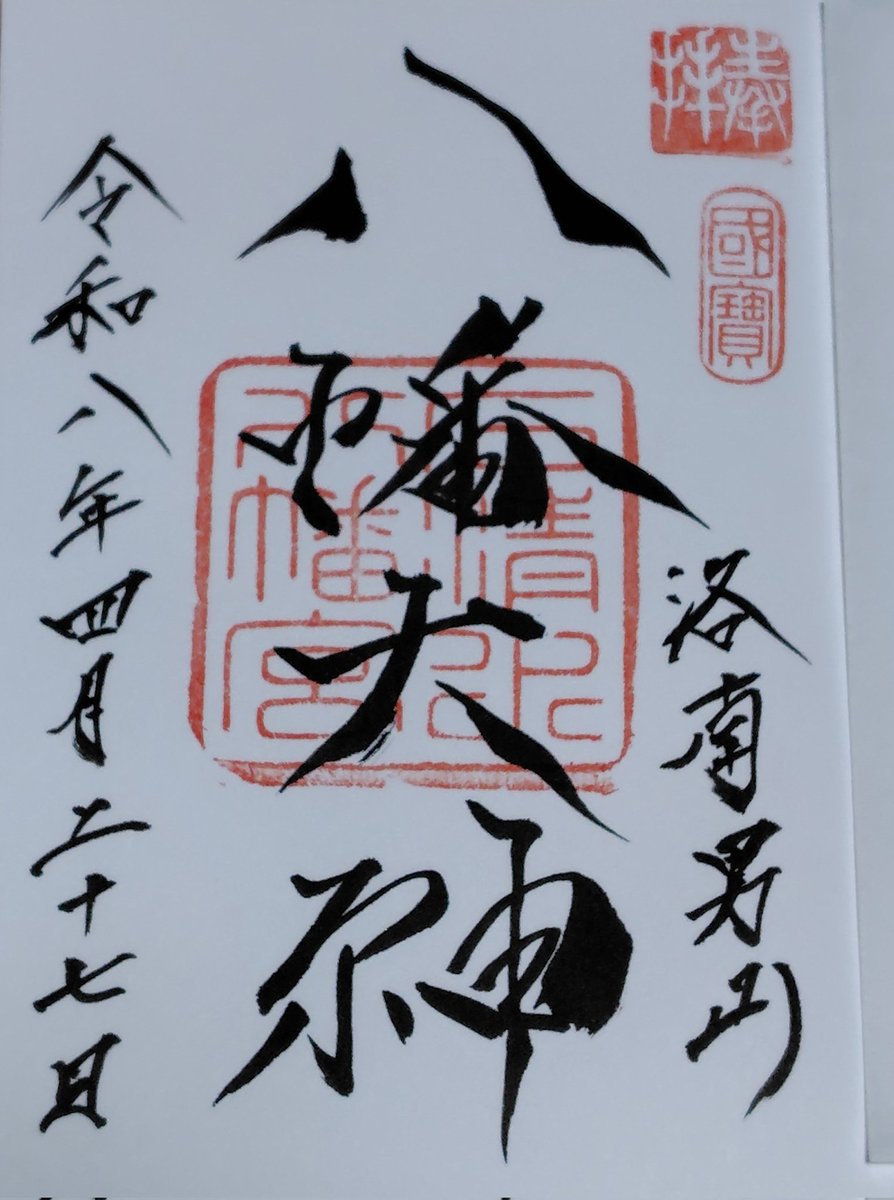 奉拝
國寶
洛南男山
八幡大神
石清水八幡宮
令和八年四月二十七日